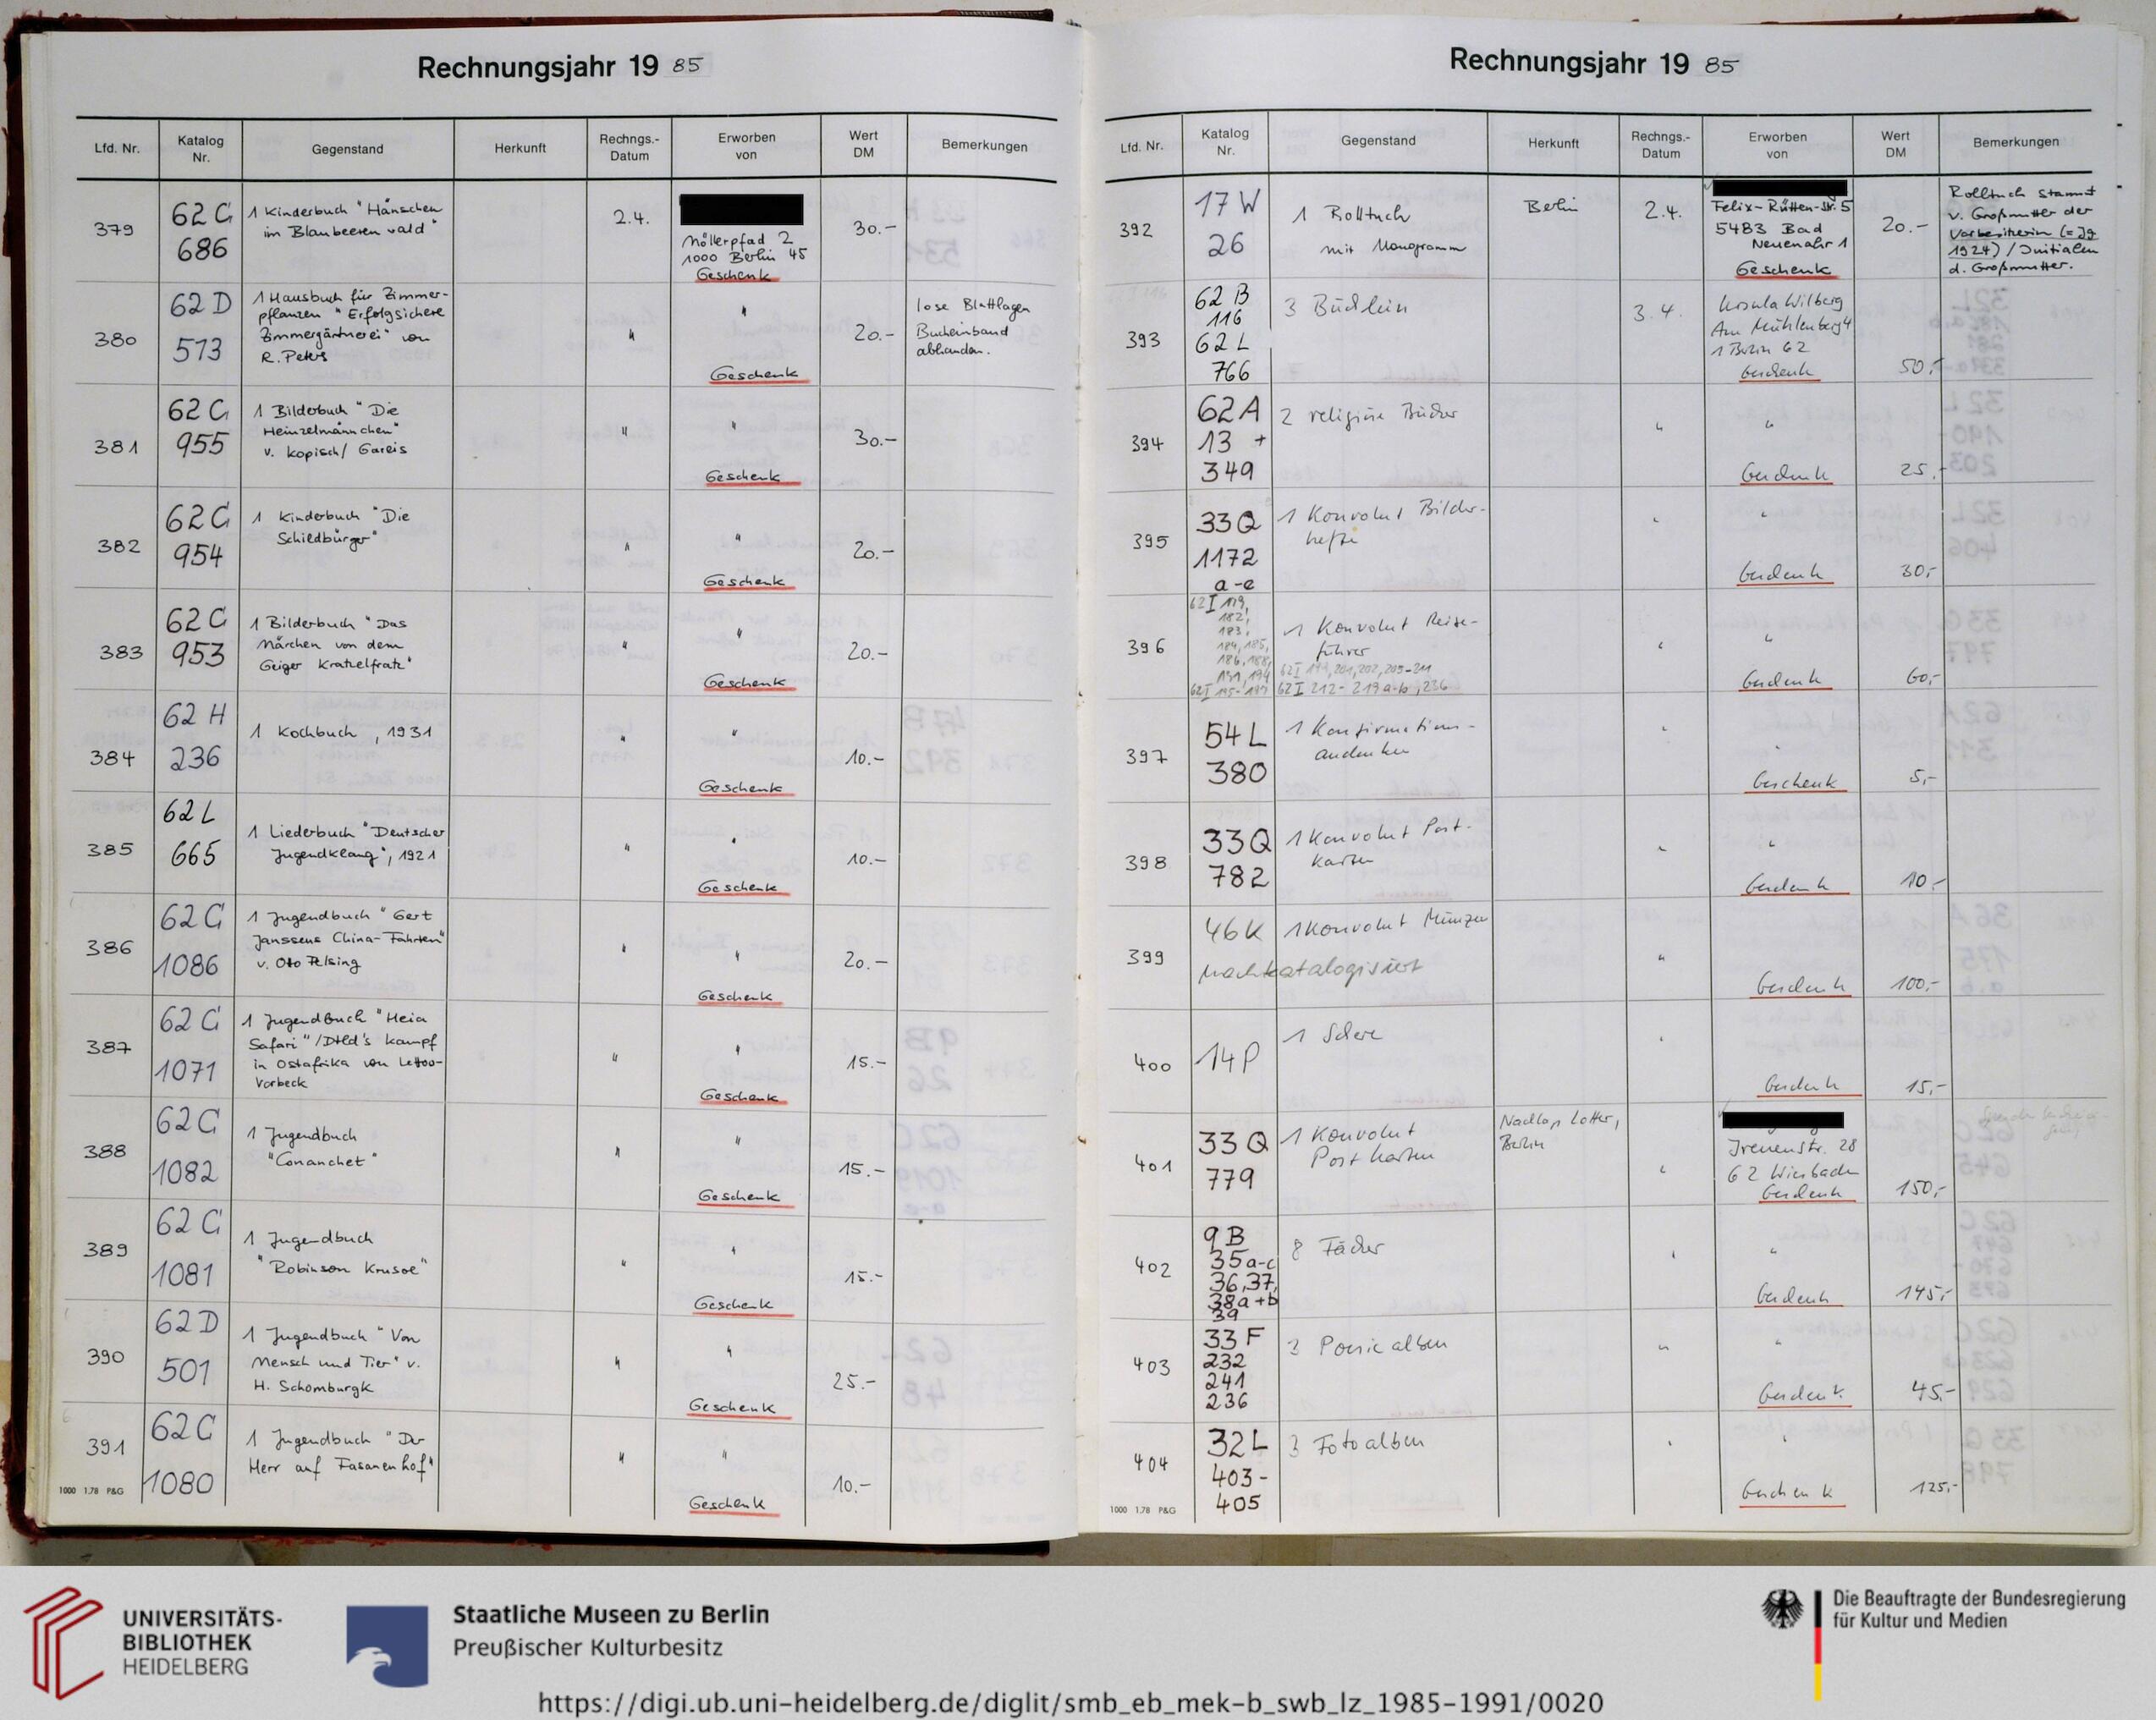 Rechnungsjahr 19 85
Lfd. Nr.
Katalog Nr.
Gegenstand
Herkunft
Rechngs.-Datum
Erworben von
Wert DM
Bemerkungen
379
62 G
686
1 Kinderbuch "Hänschen
im Blaubeerenwald"
2.4.
Möllerpfad 2
1000 Berlin 45
Geschenk
30.-
380
62 D
573
1 Hausbuch für Zimmer-
pflanzen "Erfolgsichere
Zimmergärtnerei" von
R. Peters
"
"
Geschenk
20.-
lose Blattlagen
Bucheinband
abhanden.
381
62 G
955
1 Bilderbuch "Die
Heinzelmännchen"
v. Kopisch/ Gareis
"
"
Geschenk
30.-
382
62 G
954
1 Kinderbuch "Die
Schildbürger"
"
"
Geschenk
20.-
383
62 G
953
1 Bilderbuch "Das
Märchen von dem
Geiger Kratzelfratz"
"
"
Geschenk
20.-
384
62 H
236
1 Kochbuch , 1931
"
"
Geschenk
10.-
385
62 L
665
1 Liederbuch "Deutscher
Jugendklang", 1921
"
"
Geschenk
10.-
386
62 G
1086
1 Jugendbuch "Gert
Janssens China-Fahrten"
v. Otto Pelsing
"
"
Geschenk
20.-
387
62 G
1071
1 Jugendbuch "Heia
Safari"/Dtld's Kampf
in Ostafrika von Lettow-
Vorbeck
"
"
Geschenk
15.-
388
62 G
1082
1 Jugendbuch
"Conanchet"
"
"
Geschenk
15.-
389
62 G
1081
1 Jugendbuch
"Robinson Krusoe"
"
"
Geschenk
15.-
390
62 D
501
1 Jugendbuch "Von
Mensch und Tier" v.
H. Schomburgk
"
"
Geschenk
25.-
391
62 G
1080
1 Jugendbuch "Der
Herr auf Fasanenhof"
"
"
Geschenk
10.-
1000 1.78 P&G
Rechnungsjahr 19 85
Lfd. Nr.
Katalog Nr.
Gegenstand
Herkunft
Rechngs.-Datum
Erworben von
Wert DM
Bemerkungen
392
17 W
26
1 Rolltuch
mit Monogramm
Berlin
2.4.
Felix-Rütten-Str. 5
5483 Bad
Neuenahr 1
Geschenk
20.-
Rolltuch stammt
v. Großmutter der
Vorbesitzerin (= Jg
1924) / Initialen
d. Großmutter.
393
62 B
116
62 L
766
3 Büchlein
3.4.
Ursula Wilberg
Am Mühlenberg 4
1 Berlin 62
Geschenk
50,-
394
62 A
13 +
349
2 religiöse Bücher
"
"
Geschenk
25,-
395
33 Q
1172
a-e
1 Konvolut Bilder-
hefte
"
"
Geschenk
30,-
396
62 I 179,
182,
183,
184, 185,
186, 188,
191, 194
62 I 195-197
1 Konvolut Reise-
führer
62 I 199, 201, 202, 205-211
62 I 212-219 a-b, 236
"
"
Geschenk
60,-
397
54 L
380
1 Konfirmations-
andenken
"
"
Geschenk
5,-
398
33 Q
782
1 Konvolut Post-
karten
"
"
Geschenk
10,-
399
46 K
nachkatalogisiert
1 Konvolut Münzen
"
Geschenk
100,-
400
14 P
1 Schere
"
Geschenk
15,-
401
33 Q
779
1 Konvolut
Postkarten
Nachlaß Lotter,
Berlin
"
Irenenstr. 28
62 Wiesbaden
Geschenk
150,-
402
9 B
35 a-c
36, 37,
38a+b
39
8 Fächer
"
"
Geschenk
145,-
403
33 F
232
241
236
3 Poesiealben
"
"
Geschenk
45,-
404
32 L
403-
405
3 Fotoalben
"
"
Geschenk
125,-
1000 1.78 P&G
UNIVERSITÄTS-
BIBLIOTHEK
HEIDELBERG
Staatliche Museen zu Berlin
Preußischer Kulturbesitz
Die Beauftragte der Bundesregierung
für Kultur und Medien
https://digi.ub.uni-heidelberg.de/diglit/smb_eb_mek-b_swb_lz_1985-1991/0020